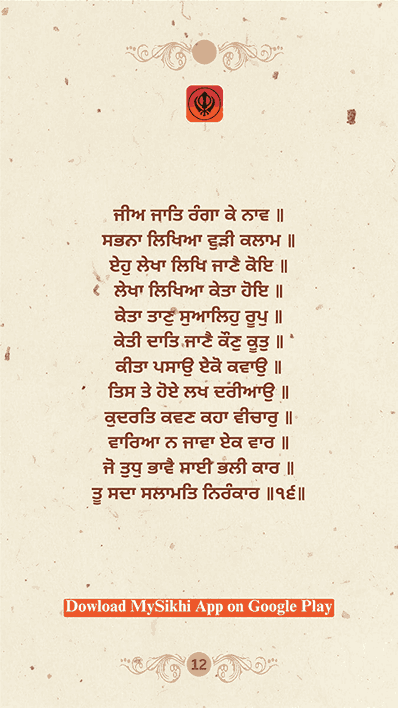 ਜੀਅ ਜਾਤਿ ਰੰਗਾ ਕੇ ਨਾਵ ॥
ਸਭਨਾ ਲਿਖਿਆ ਵੁੜੀ ਕਲਾਮ ॥
ਏਹੁ ਲੇਖਾ ਲਿਖਿ ਜਾਣੈ ਕੋਇ ॥
ਲੇਖਾ ਲਿਖਿਆ ਕੇਤਾ ਹੋਇ ॥
ਕੇਤਾ ਤਾਣੁ ਸੁਆਲਿਹੁ ਰੂਪੁ ॥
ਕੇਤੀ ਦਾਤਿ ਜਾਣੈ ਕੌਣੁ ਕੂਤੁ ॥
ਕੀਤਾ ਪਸਾਉ ਏਕੋ ਕਵਾਉ ॥
ਤਿਸ ਤੇ ਹੋਏ ਲਖ ਦਰੀਆਉ ॥
ਕੁਦਰਤਿ ਕਵਣ ਕਹਾ ਵੀਚਾਰੁ ॥
ਵਾਰਿਆ ਨ ਜਾਵਾ ਏਕ ਵਾਰ ॥
ਜੋ ਤੁਧੁ ਭਾਵੈ ਸਾਈ ਭਲੀ ਕਾਰ ॥
ਤੂ ਸਦਾ ਸਲਾਮਤਿ ਨਿਰੰਕਾਰ ॥੧੬॥
Dowload MySikhi App on Google Play
12